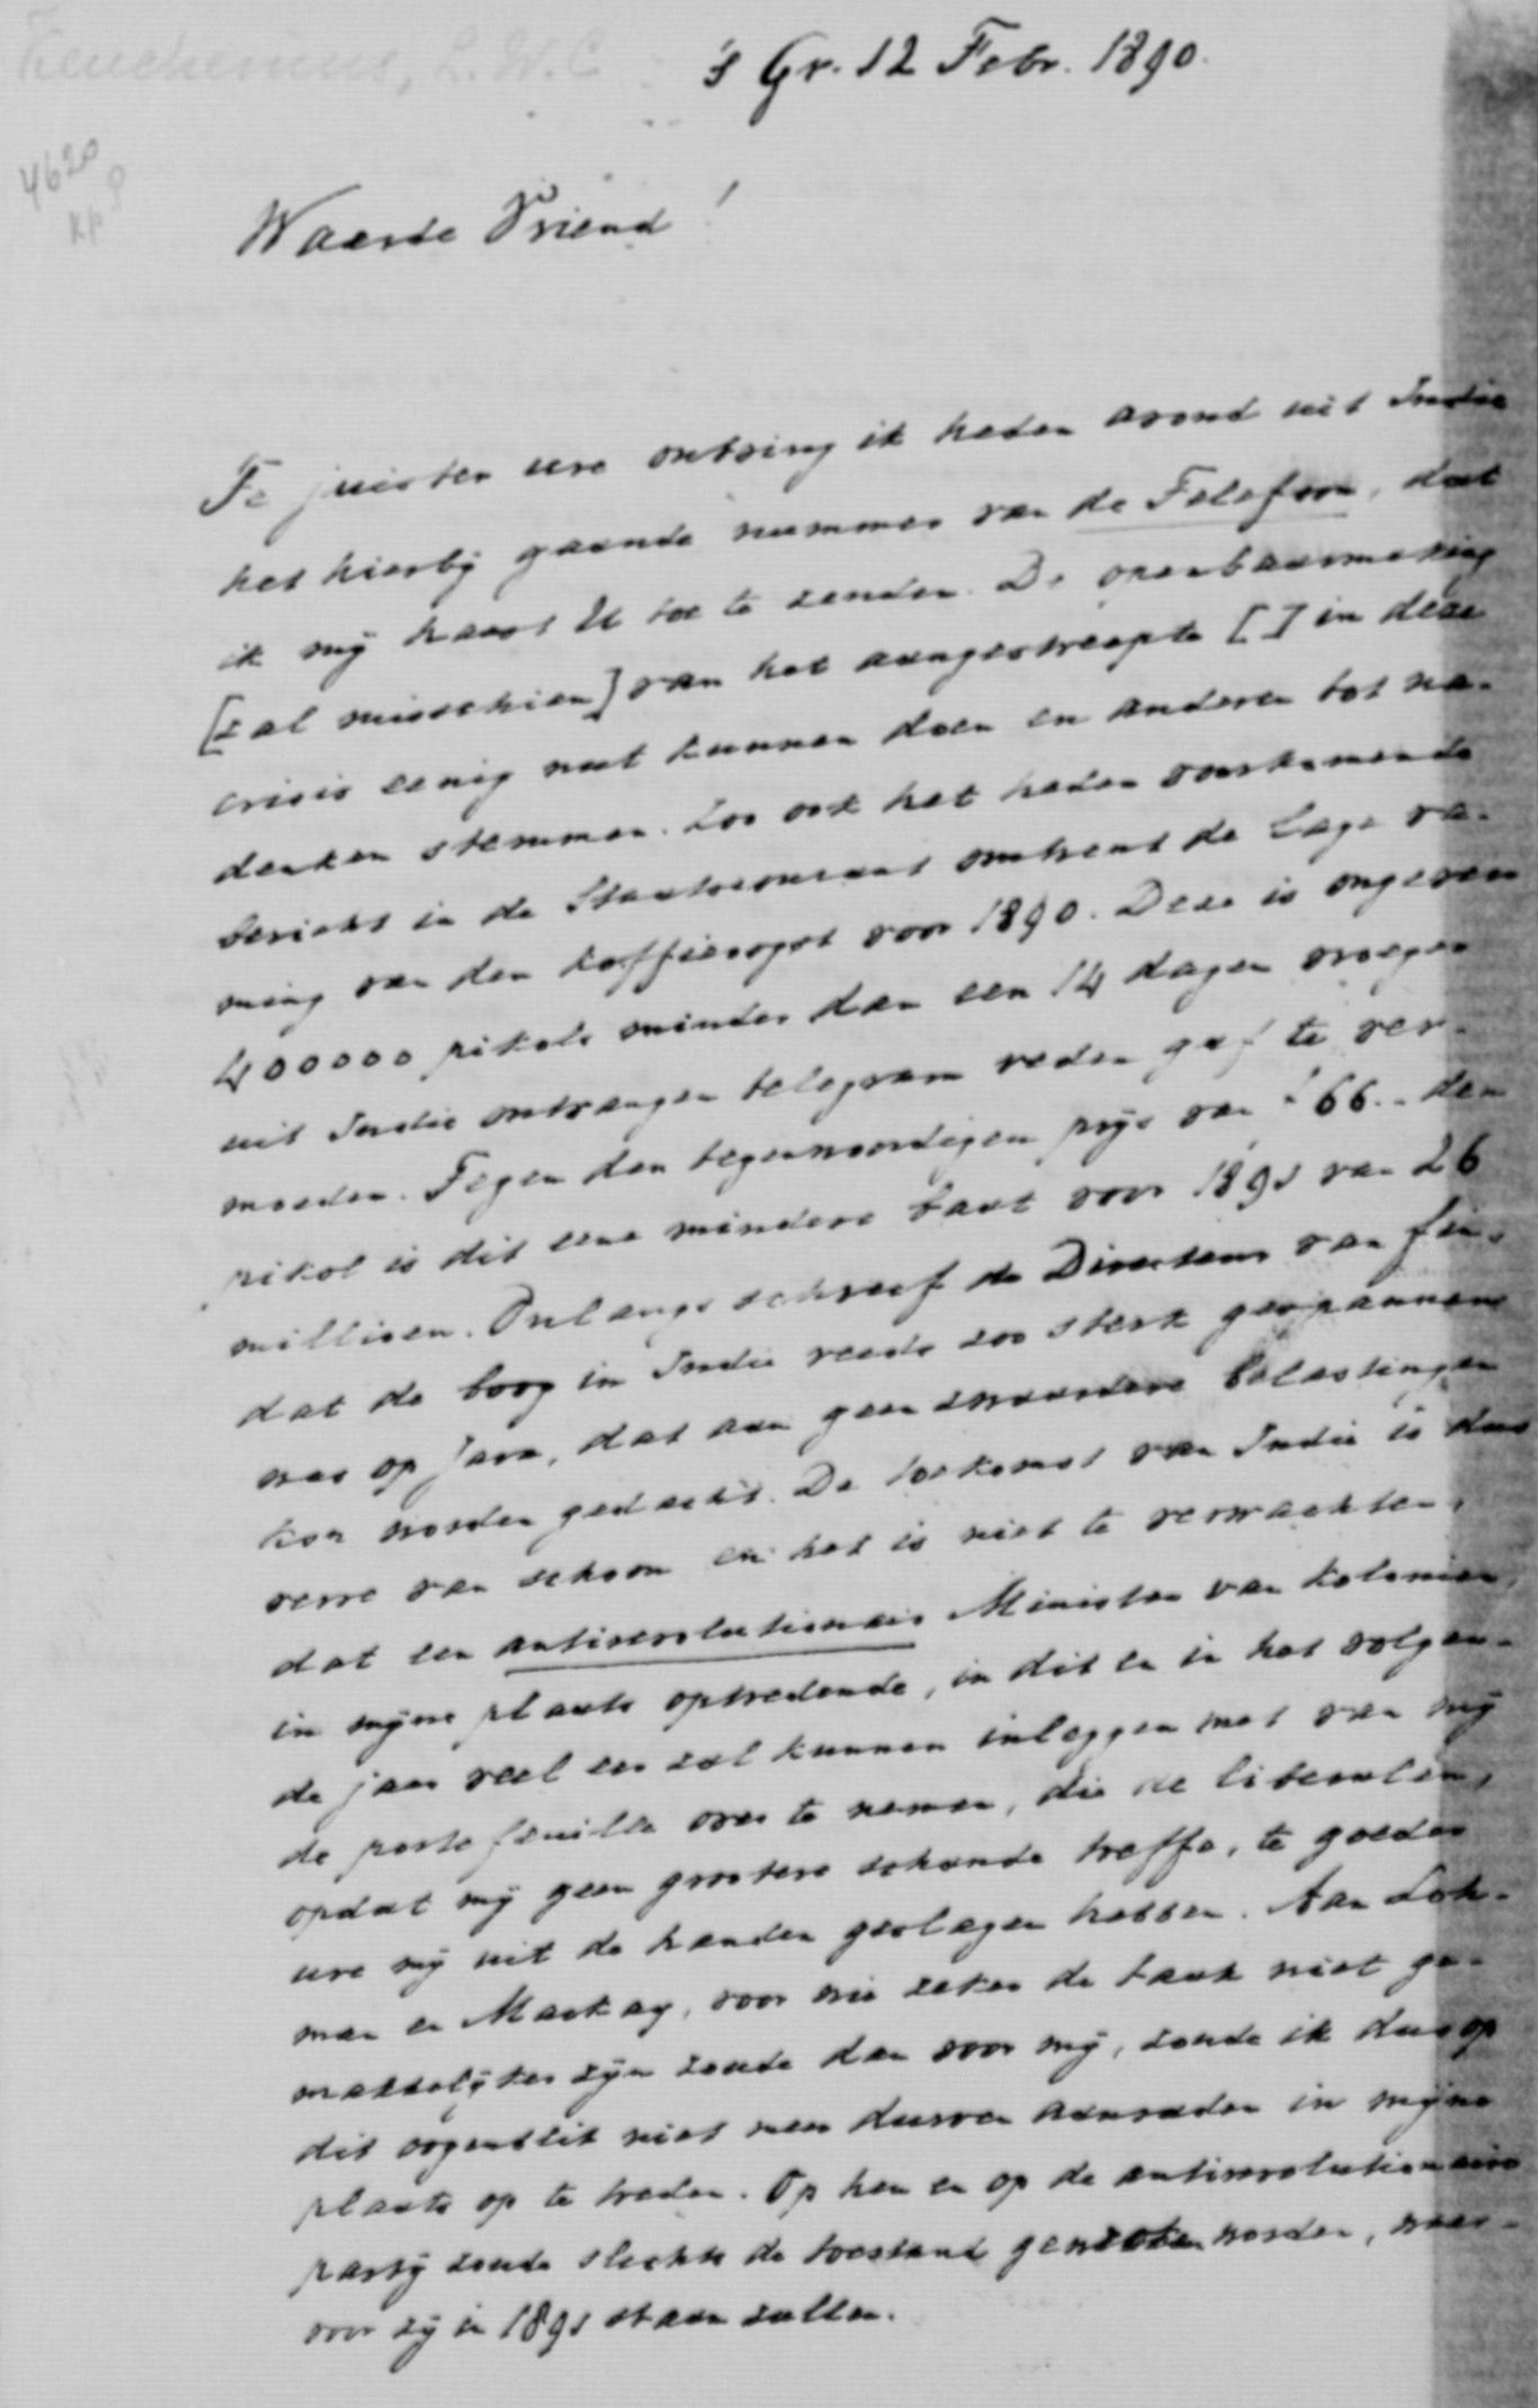 Keuchenius, L.W.C
's Gr. 12 Febr. 1890.
4620
Kp 8
Waarde Vriend!
Te juister ure ontving ik heden avond uit Indie
het hierbij gaande nummer van de Telefoon, dat
ik mij haast U toe te zenden. De openbaarmaking
[zal misschien] van het aangestreepte [ ] in deze
crisis eenig nut kunnen doen en anderen tot na-
denken stemmen. Zoo ook het heden voorkomende
bericht in de Staatscourant omtrent de lage ra-
ming van den koffieoogst voor 1890. Deze is ongeveer
400000 pikols minder dan een 14 dagen vroeger
uit Indie ontvangen telegram reden gaf te ver-
moeden. Tegen den tegenwoordigen prijs van f 66.- den
pikol is dit eene mindere bate voor 1891 van 26
millioen. Onlangs schreef de Directeur van fin.
dat de boog in Indie reeds zoo sterk gespannen
was op Java, dat aan geen zwaardere belastingen
kon worden gedacht. De toekomst van Indie is dus
verre van schoon en het is niet te verwachten,
dat een antirevolutionair Minister van Kolonien,
in mijne plaats optredende, in dit en in het volgen-
de jaar veel eer zal kunnen inleggen met van mij
de portefeuille over te nemen, die de liberalen,
opdat mij geen grootere schande treffe, te goeder
ure mij uit de handen geslagen hebben. Aan Loh-
man en Mackay, voor wie zeker de taak niet ge-
makkelijker zijn zoude dan voor mij, zoude ik dus op
dit oogenblik niet meer durven aanraden in mijne
plaats op te treden. Op hen en op de antirevolutionaire
partij zoude slechts de toestand geworden, waar-
voor zij in 1891 staan zullen.